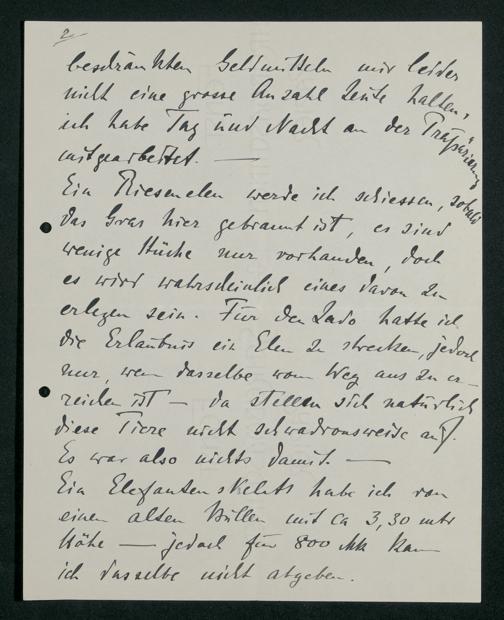 2
beschränkten Geldmitteln mir leider
nicht eine grosse Anzahl Leute halten,
ich habe Tag und Nacht an der Präparierung
mitgearbeitet. —
Ein Riesenelen werde ich schiessen, sobald
das Gras hier gebrannt ist, es sind
wenige Stücke nur vorhanden, doch
es wird wahrscheinlich eines davon zu
erlegen sein. Für den Lado hatte ich
die Erlaubnis ein Elen zu strecken, jedoch
nur, wenn dasselbe vom Weg aus zu er-
reichen ist — da stellen sich natürlich
diese Tiere nicht schwadronsweise auf.
Es war also nichts damit. —
Ein Elefantenskelett habe ich von
einem alten Bullen mit ca 3,30 mtr
Höhe — jedoch für 800 Mk kann
ich dasselbe nicht abgeben.